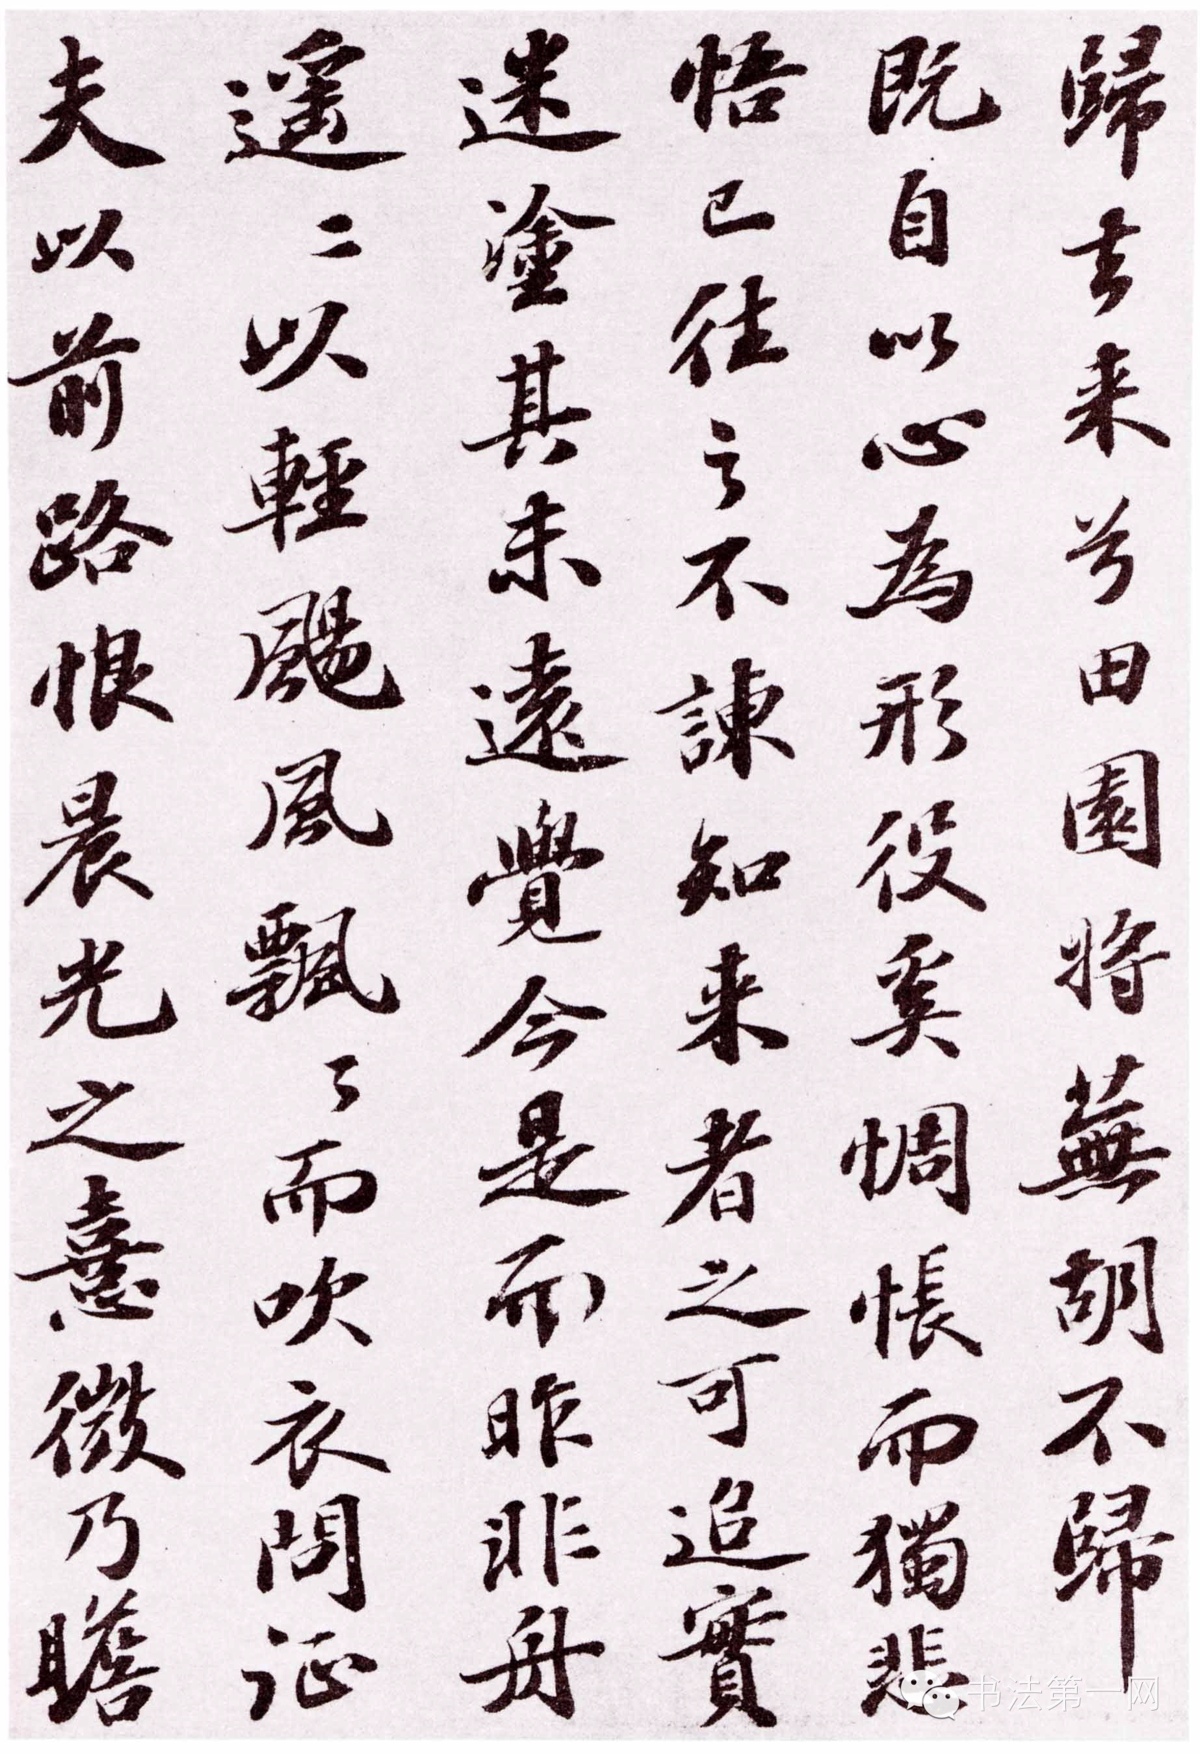 歸去来兮田園将蕪胡不歸
既自以心為形役奚惆悵而獨悲
悟已往之不諫知来者之可追實
迷塗其未遠覺今是而昨非舟
遥〻以輕颺風飄〻而吹衣問征
夫以前路恨晨光之憙微乃瞻
书法第一网